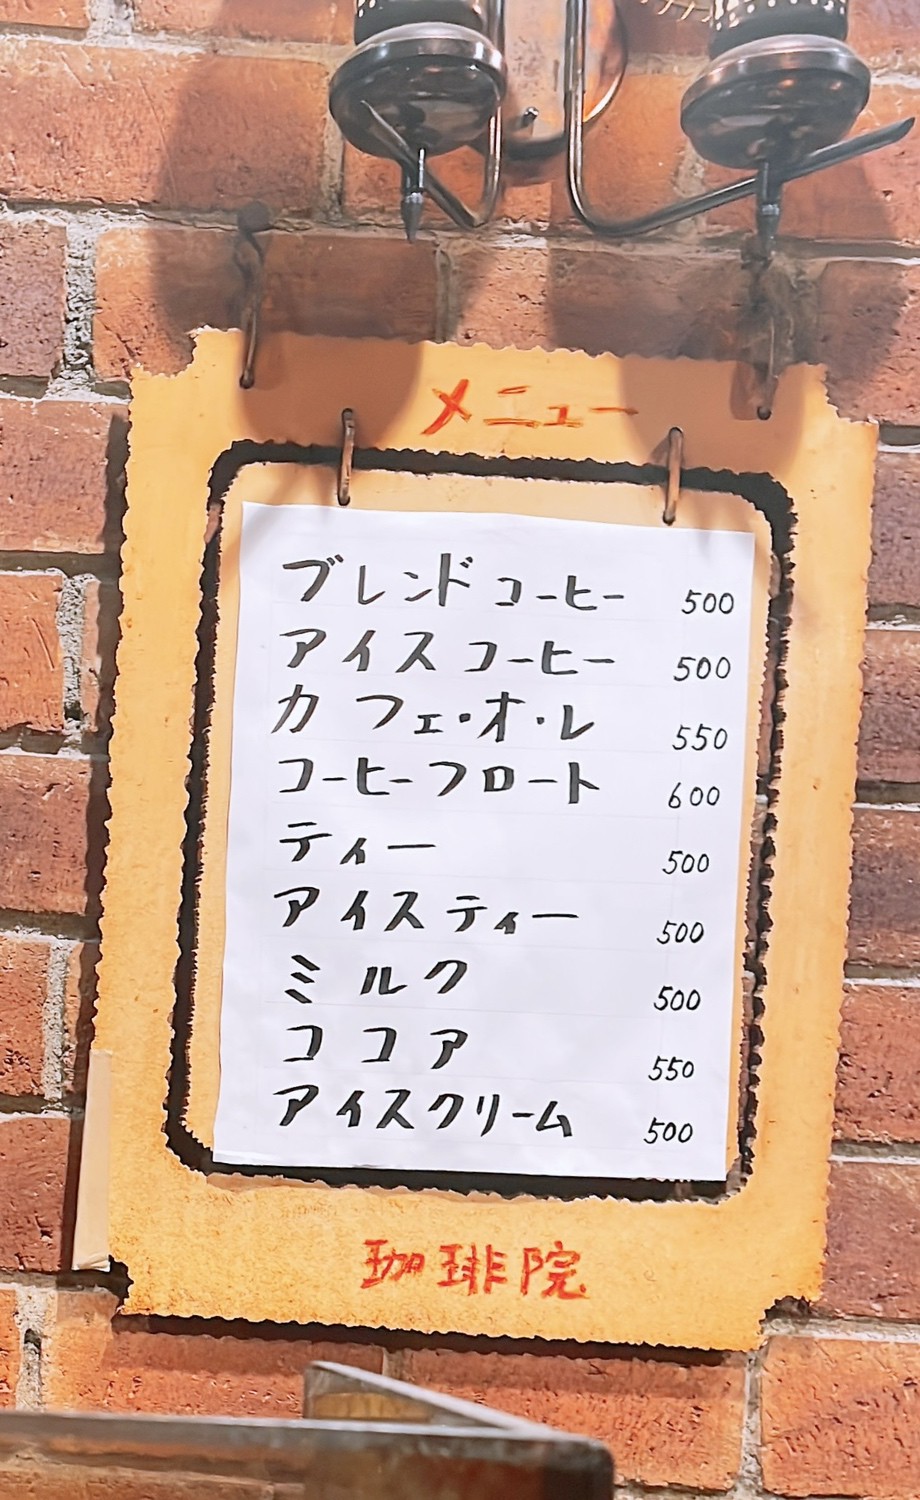 メニュー
ブレンドコーヒー 500
アイスコーヒー 500
カフェ・オ・レ 550
コーヒーフロート 600
ティー 500
アイスティー 500
ミルク 500
ココア 550
アイスクリーム 500
珈琲院